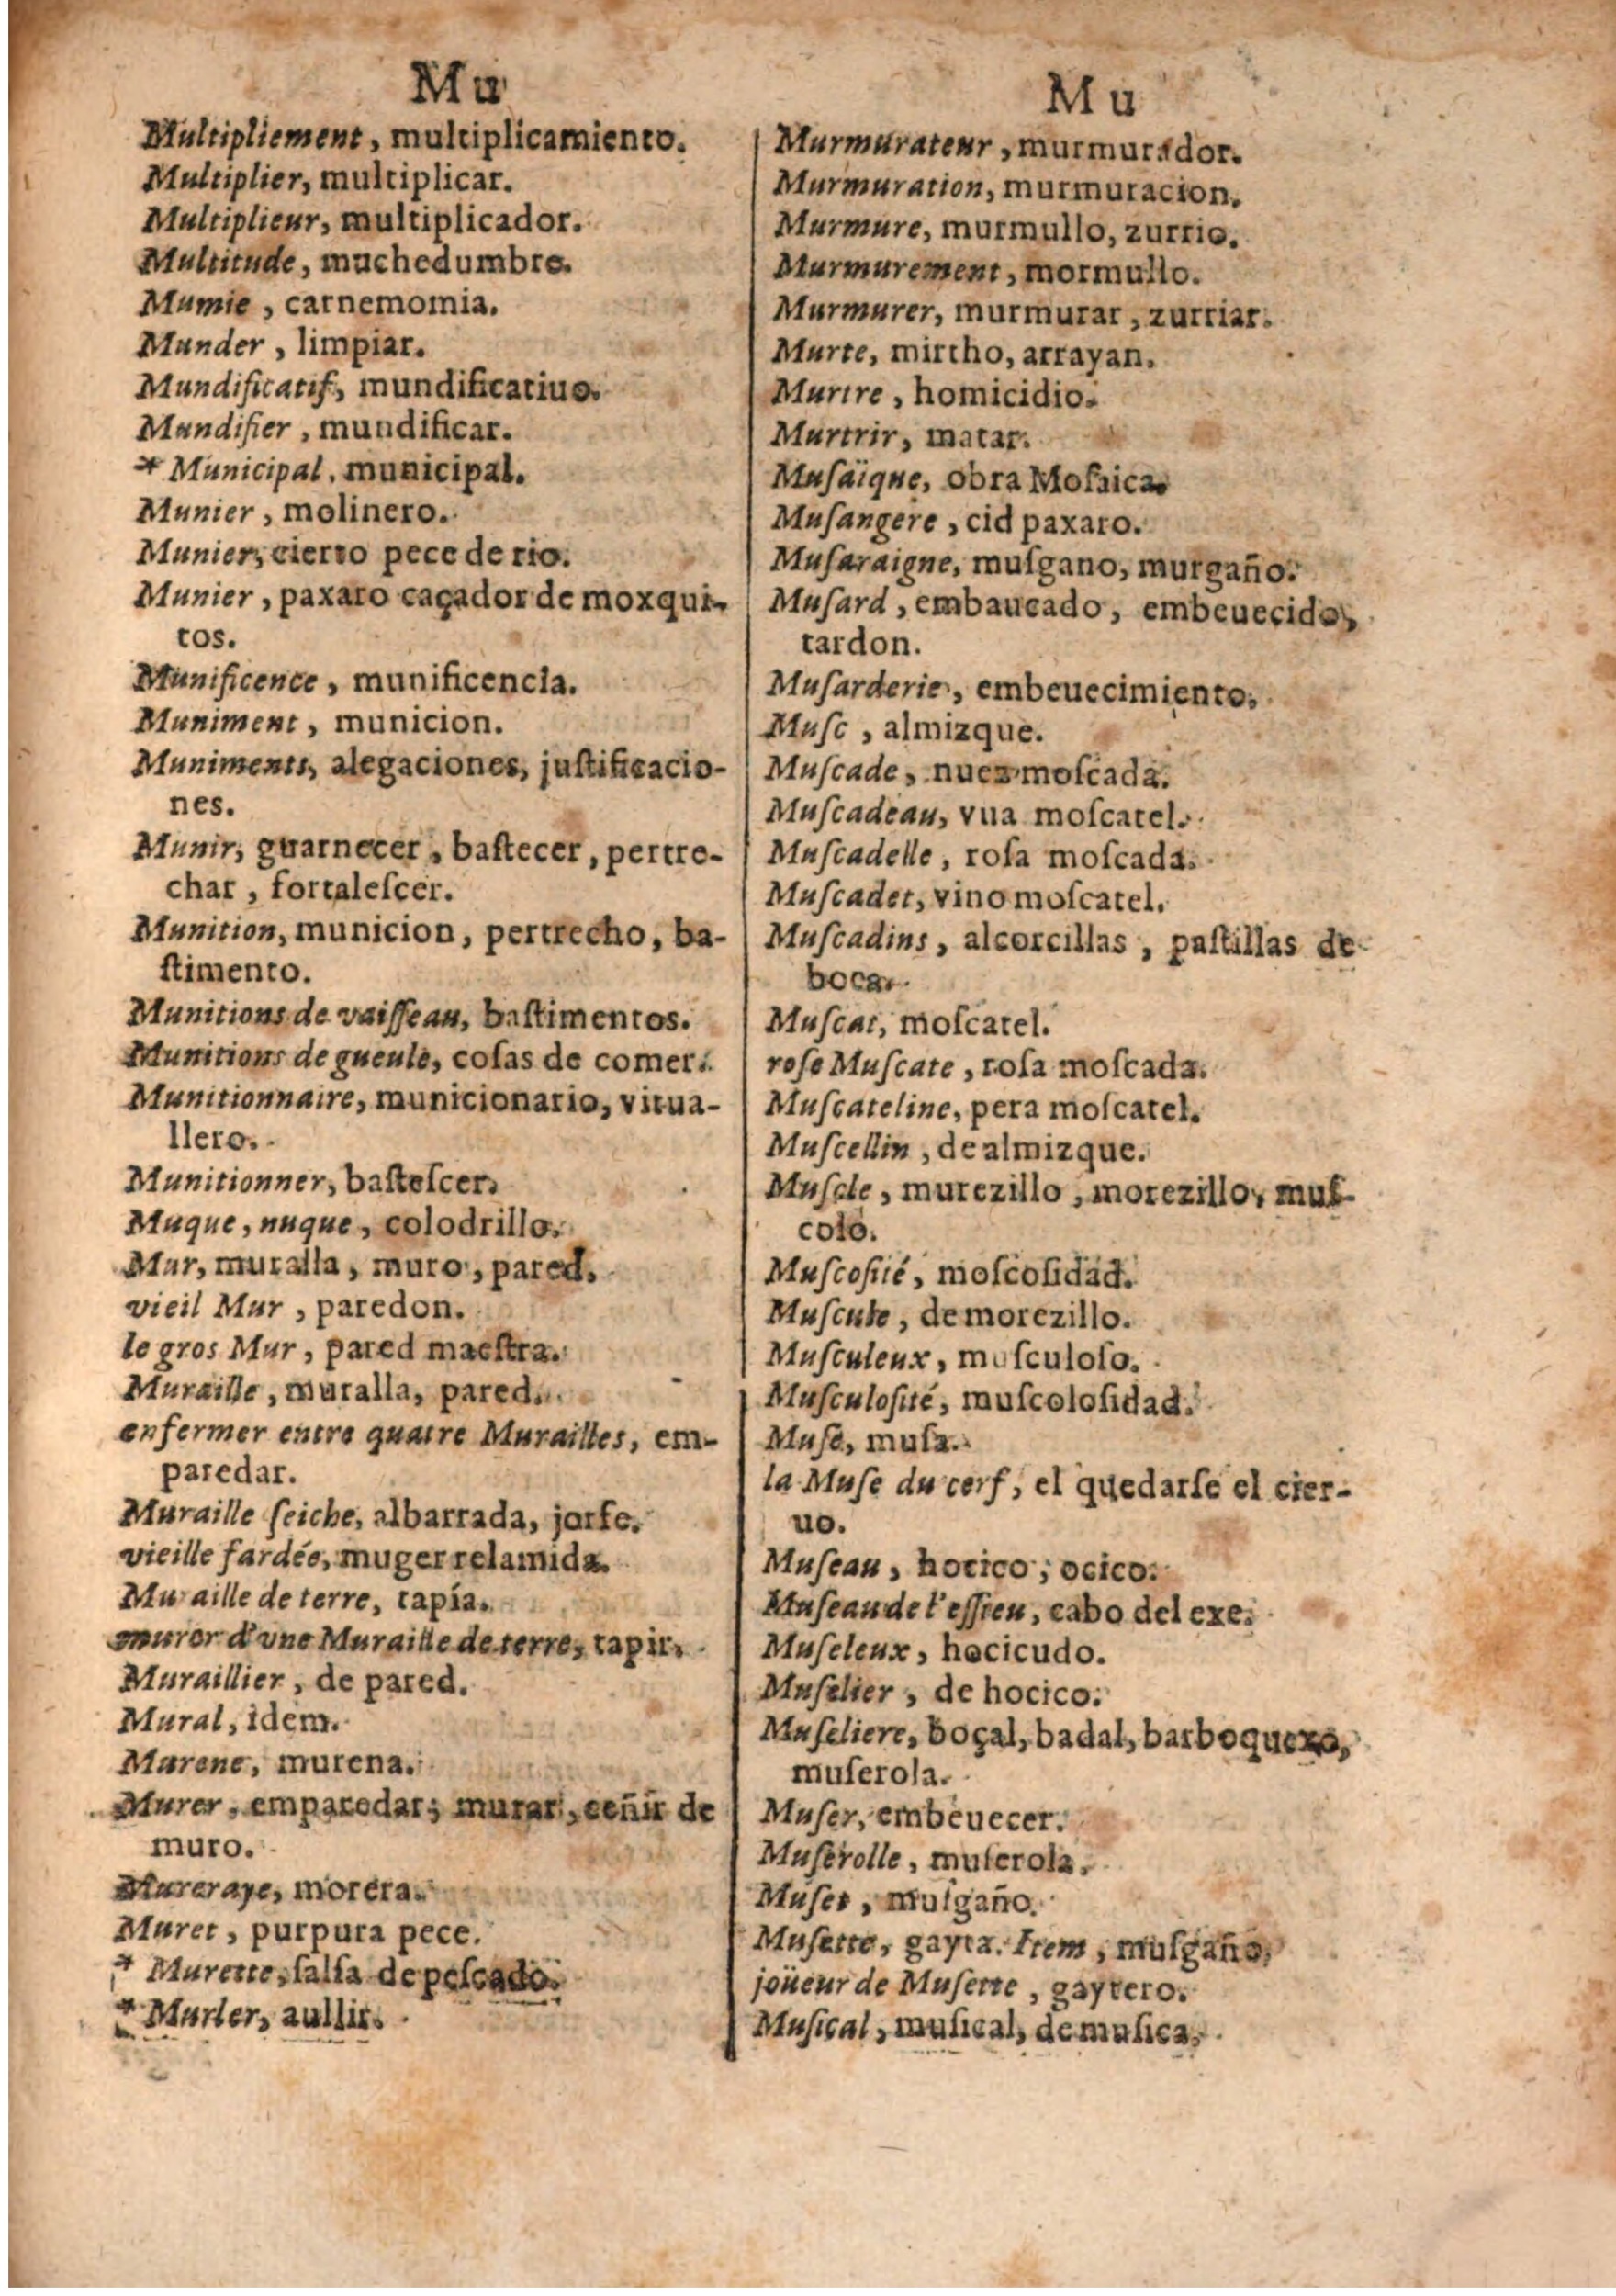 Mu
Multipliement, multiplicamiento.
Multiplier, multiplicar.
Multiplieur, multiplicador.
Multitude, muchedumbre.
Mumie, carnemomia.
Munder, limpiar.
Mundificatif, mundificatiuo.
Mundifier, mundificar.
* Municipal, municipal.
Munier, molinero.
Munier, cierto pece de rio.
Munier, paxaro caçador de moxqui-
tos.
Munificence, munificencia.
Muniment, municion.
Muniments, alegaciones, juſtificacio-
nes.
Munir, guarnecer, baſtecer, pertre-
char, fortaleſcer.
Munition, municion, pertrecho, ba-
ſtimento.
Munitions de vaiſſeau, baſtimentos.
Munitions de gueule, coſas de comer.
Munitionnaire, municionario, vitua-
llero.
Munitionner, baſteſcer.
Muque, nuque, colodrillo.
Mur, muralla, muro, pared.
vieil Mur, paredon.
le gros Mur, pared maeſtra.
Muraille, muralla, pared.
enfermer entre quatre Murailles, em-
paredar.
Muraille ſeiche, albarrada, jorfe.
vieille fardée, muger relamida.
Muraille de terre, tapía.
murer d'vne Muraille de terre, tapir.
Muraillier, de pared.
Mural, idem.
Murene, murena.
Murer, emparedar; murar, ceñir de
muro.
Mureraye, morera.
Muret, purpura pece.
* Murette, ſalſa de peſcado.
* Murler, aullir.
Mu
Murmurateur, murmurador.
Murmuration, murmuracion.
Murmure, murmullo, zurrio.
Murmurement, mormullo.
Murmurer, murmurar, zurriar.
Murte, mirtho, arrayan.
Murtre, homicidio.
Murtrir, matar.
Muſaïque, obra Moſaica.
Muſangere, cid paxaro.
Muſaraigne, muſgano, murgaño.
Muſard, embaucado, embeuecido,
tardon.
Muſarderie, embeuecimiento.
Muſc, almizque.
Muſcade, nuez moſcada.
Muſcadeau, vua moſcatel.
Muſcadelle, roſa moſcada.
Muſcadet, vino moſcatel.
Muſcadins, alcorcillas, paſtillas de
boca.
Muſcat, moſcatel.
roſe Muſcate, roſa moſcada.
Muſcateline, pera moſcatel.
Muſcellin, de almizque.
Muſcle, murezillo, morezillo, muſ-
colo.
Muſcoſité, moſcoſidad.
Muſcule, de morezillo.
Muſculeux, muſculoſo.
Muſculoſité, muſcoloſidad.
Muſe, muſa.
la Muſe du cerf, el quedarſe el cier-
uo.
Muſeau, hocico; ocico.
Muſeau de l'eſſieu, cabo del exe.
Muſeleux, hocicudo.
Muſelier, de hocico.
Muſeliere, boçal, badal, barboquexo,
muſerola.
Muſer, embeuecer.
Muſerolle, muſerola.
Muſet, muſgaño.
Muſette, gayta. Item, muſgaño.
joüeur de Muſette, gaytero.
Muſical, muſical, de muſica.